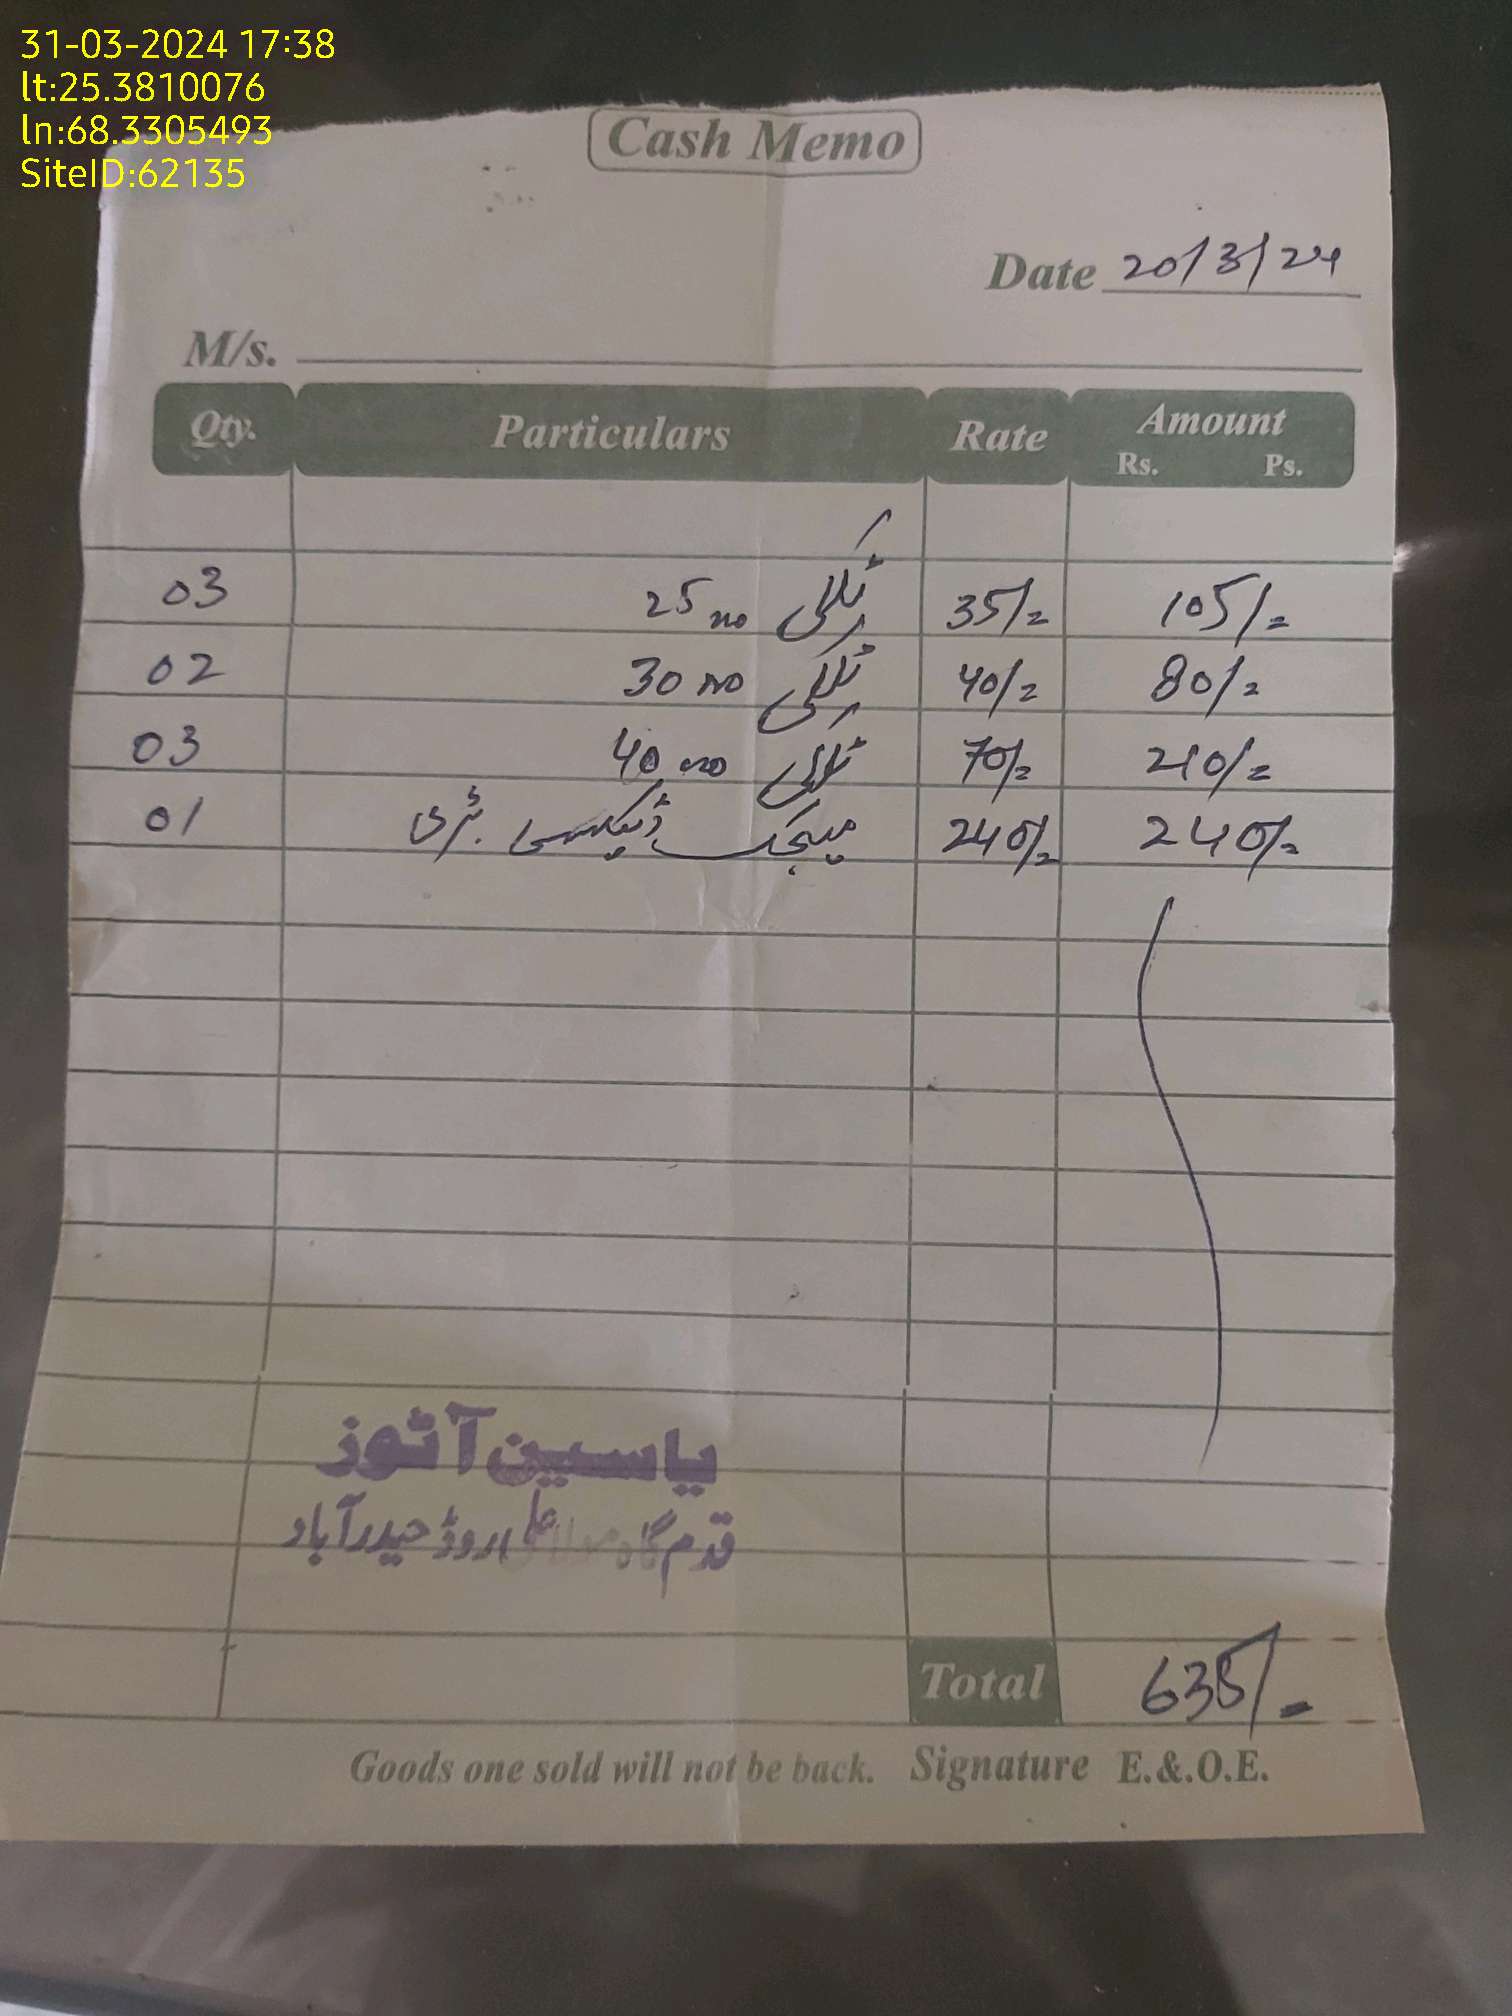 31-03-2024 17:38
lt:25.3810076
ln:68.3305493
SiteID:62135
Cash Memo
Date 20/3/24
M/s.
Qty. Particulars Rate Amount
Rs. Ps.
03 25 no 35/= 105/=
02 30 no 40/= 80/=
03 40 no 70/= 210/=
01 میجک 240/= 240/=
یاسین آٹوز
قدم گاہ مولا علی روڈ حیدرآباد
Total 635/=
Goods one sold will not be back. Signature E.&.O.E.